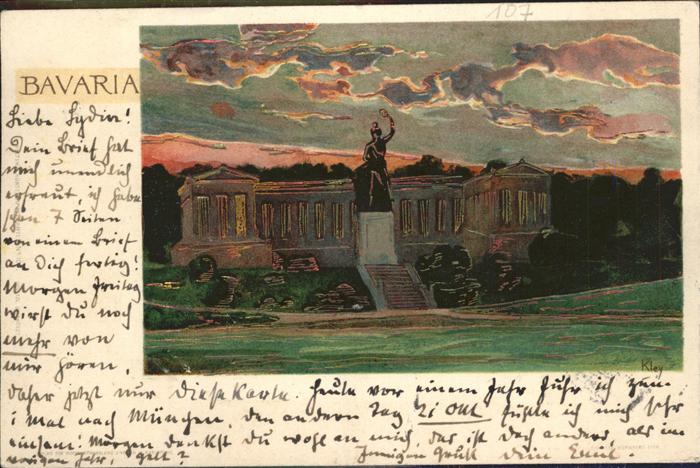 107
BAVARIA
Liebe Lydia!
Dein Brief hat
mich unendlich
erfreut, ich habe
schon 7 Seiten
von einem Brief
an Dich fertig!
Morgen Freitag
wirst Du noch
mehr von
mir hören,
Kley
daher jetzt nur diese Karte. Heute vor einem Jahr fuhr ich zum
1 Mal nach München, den andern Tag 21 Okt fühlte ich mich sehr
einsam! Morgen denkst Du wohl an mich, das ist doch anders, als im
vorigen Jahr, gelt? Innigen Gruß Dein Emil.